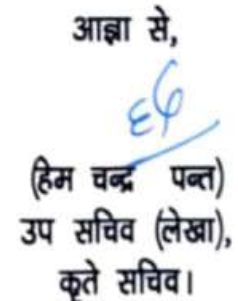 आज्ञा से,
(हिम चन्द्र पन्त)
उप सचिव (लेखा),
कृते सचिव।